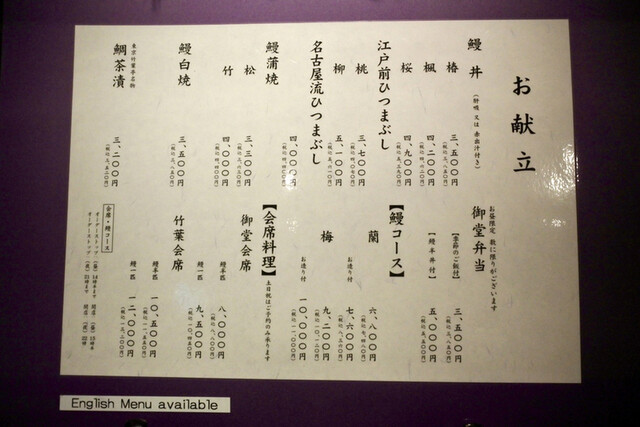 お献立
鰻丼 (肝吸 又は 赤出汁付き)
椿 三、五〇〇円 (税込 三、八五〇円)
楓 四、二〇〇円 (税込 四、六二〇円)
桜 四、九〇〇円 (税込 五、三九〇円)
江戸前ひつまぶし
桃 三、七〇〇円 (税込 四、〇七〇円)
柳 五、一〇〇円 (税込 五、六一〇円)
名古屋流ひつまぶし 四、〇〇〇円 (税込 四、四〇〇円)
鰻蒲焼
松 三、三〇〇円 (税込 三、六三〇円)
竹 四、〇〇〇円 (税込 四、四〇〇円)
鰻白焼 三、五〇〇円 (税込 三、八五〇円)
東京竹葉亭名物
鯛茶漬 三、二〇〇円 (税込 三、五二〇円)
お昼限定 数に限りがございます
御堂弁当
【季節のご飯付】 三、五〇〇円 (税込 三、八五〇円)
五、〇〇〇円 (税込 五、五〇〇円)
【鰻コース】
蘭 六、八〇〇円 (税込 七、四八〇円)
お造り付 七、六〇〇円 (税込 八、三六〇円)
梅 九、二〇〇円 (税込 一〇、一二〇円)
お造り付 一〇、〇〇〇円 (税込 一一、〇〇〇円)
【会席料理】 土日祝はご予約のみ承ります
御堂会席 鰻半匹 八、〇〇〇円 (税込 八、八〇〇円)
鰻一匹 九、五〇〇円 (税込 一〇、四五〇円)
竹葉会席 鰻半匹 一〇、五〇〇円 (税込 一一、五五〇円)
鰻一匹 一二、〇〇〇円 (税込 一三、二〇〇円)
会席・鰻コース
オーダーストップ (昼) 14時半まで 閉店 (昼) 15時半
オーダーストップ (夜) 閉店 (夜) 22時
English Menu available